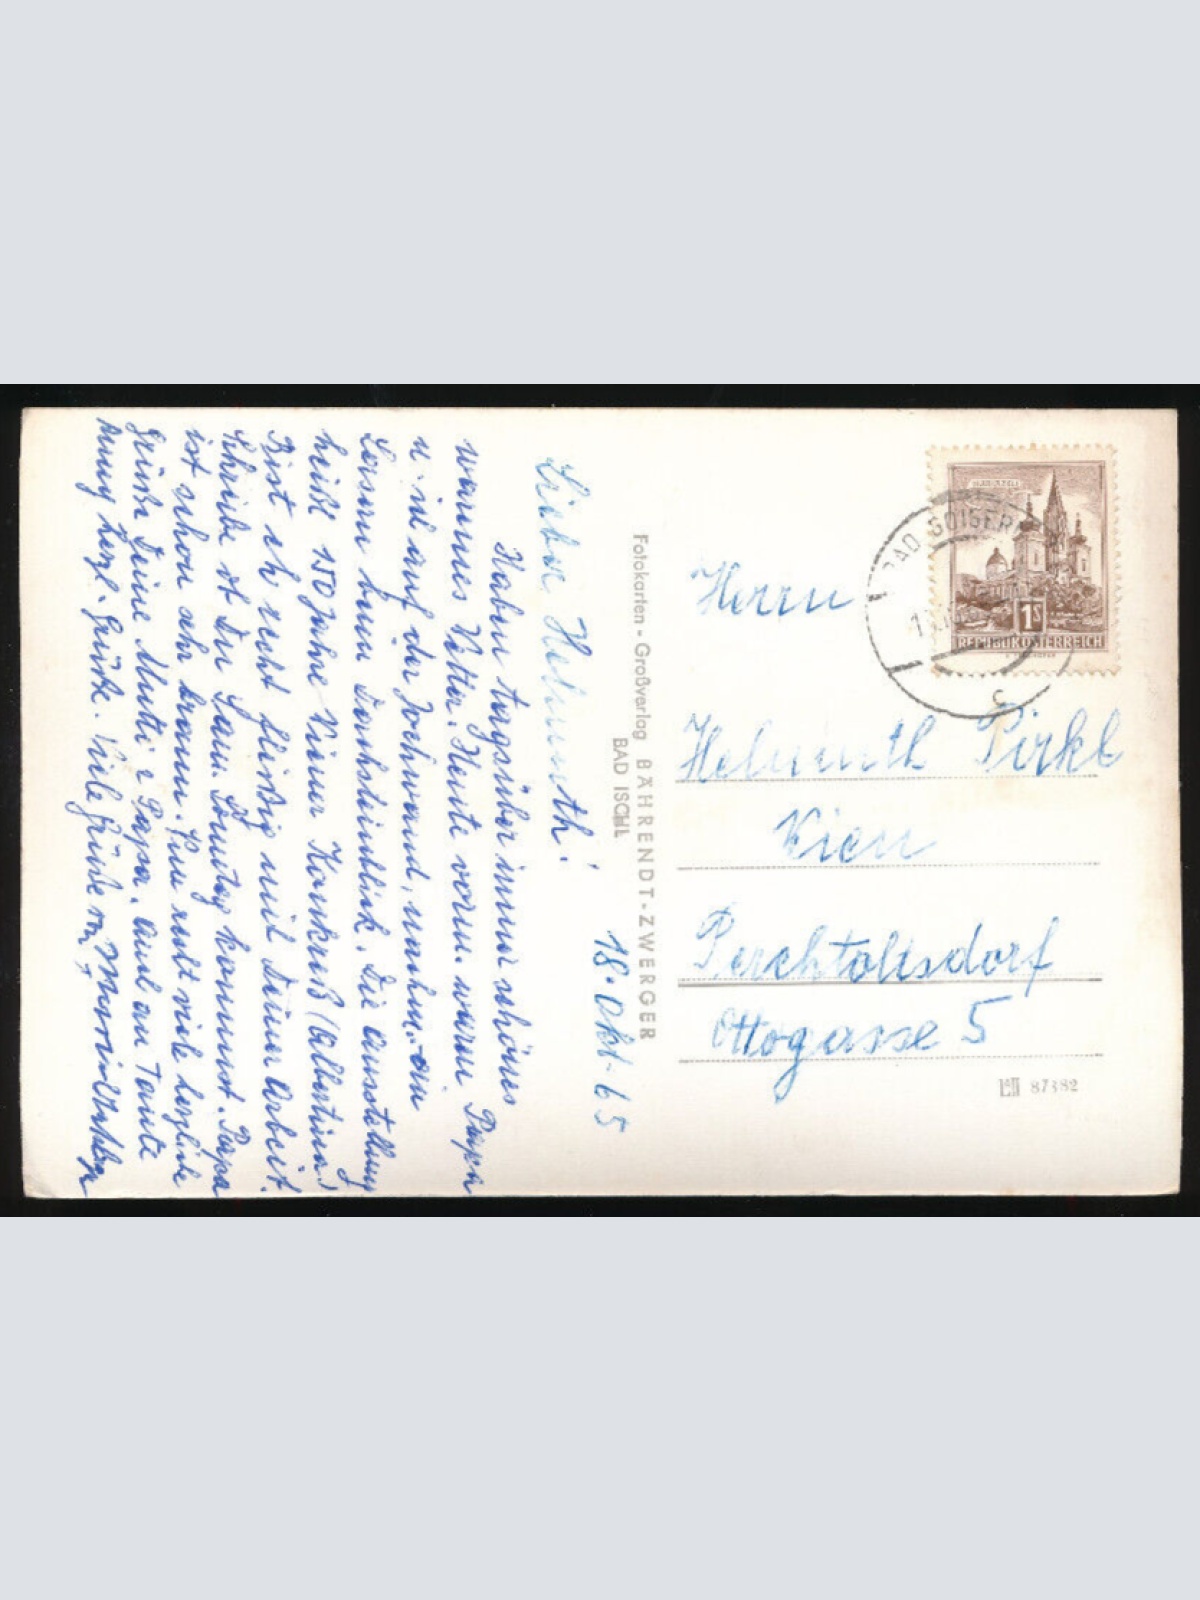 18. Okt. 65
Lieber Helmuth!
Haben tagsüber immer schönes
warmes Wetter. Heute vorm. waren Papa
u. ich auf der Jochwand, nachm.
beim Dachsteinblick. Die Ausstellung
heißt 150 Jahre Wiener Kongreß (Albertina)
Bist eh recht fleißig mit Deiner Arbeit.
Schreibe ob Du Sam. Sonntag kommst. Papa
ist schon sehr braun. Nun recht viele herzliche
Grüße Deine Mutti & Papa. Auch an Tante
Anny herzl. Grüße. Viele Grüße von
Fotokarten - Großverlag BÄHRENDT-ZWERGER
BAD ISCHL
MARIAZELL
1S
REPUBLIK ÖSTERREICH
BAD GOISERN
c
Herrn
Helmuth Pirkl
Wien
Perchtoldsdorf
Ottogasse 5
87382